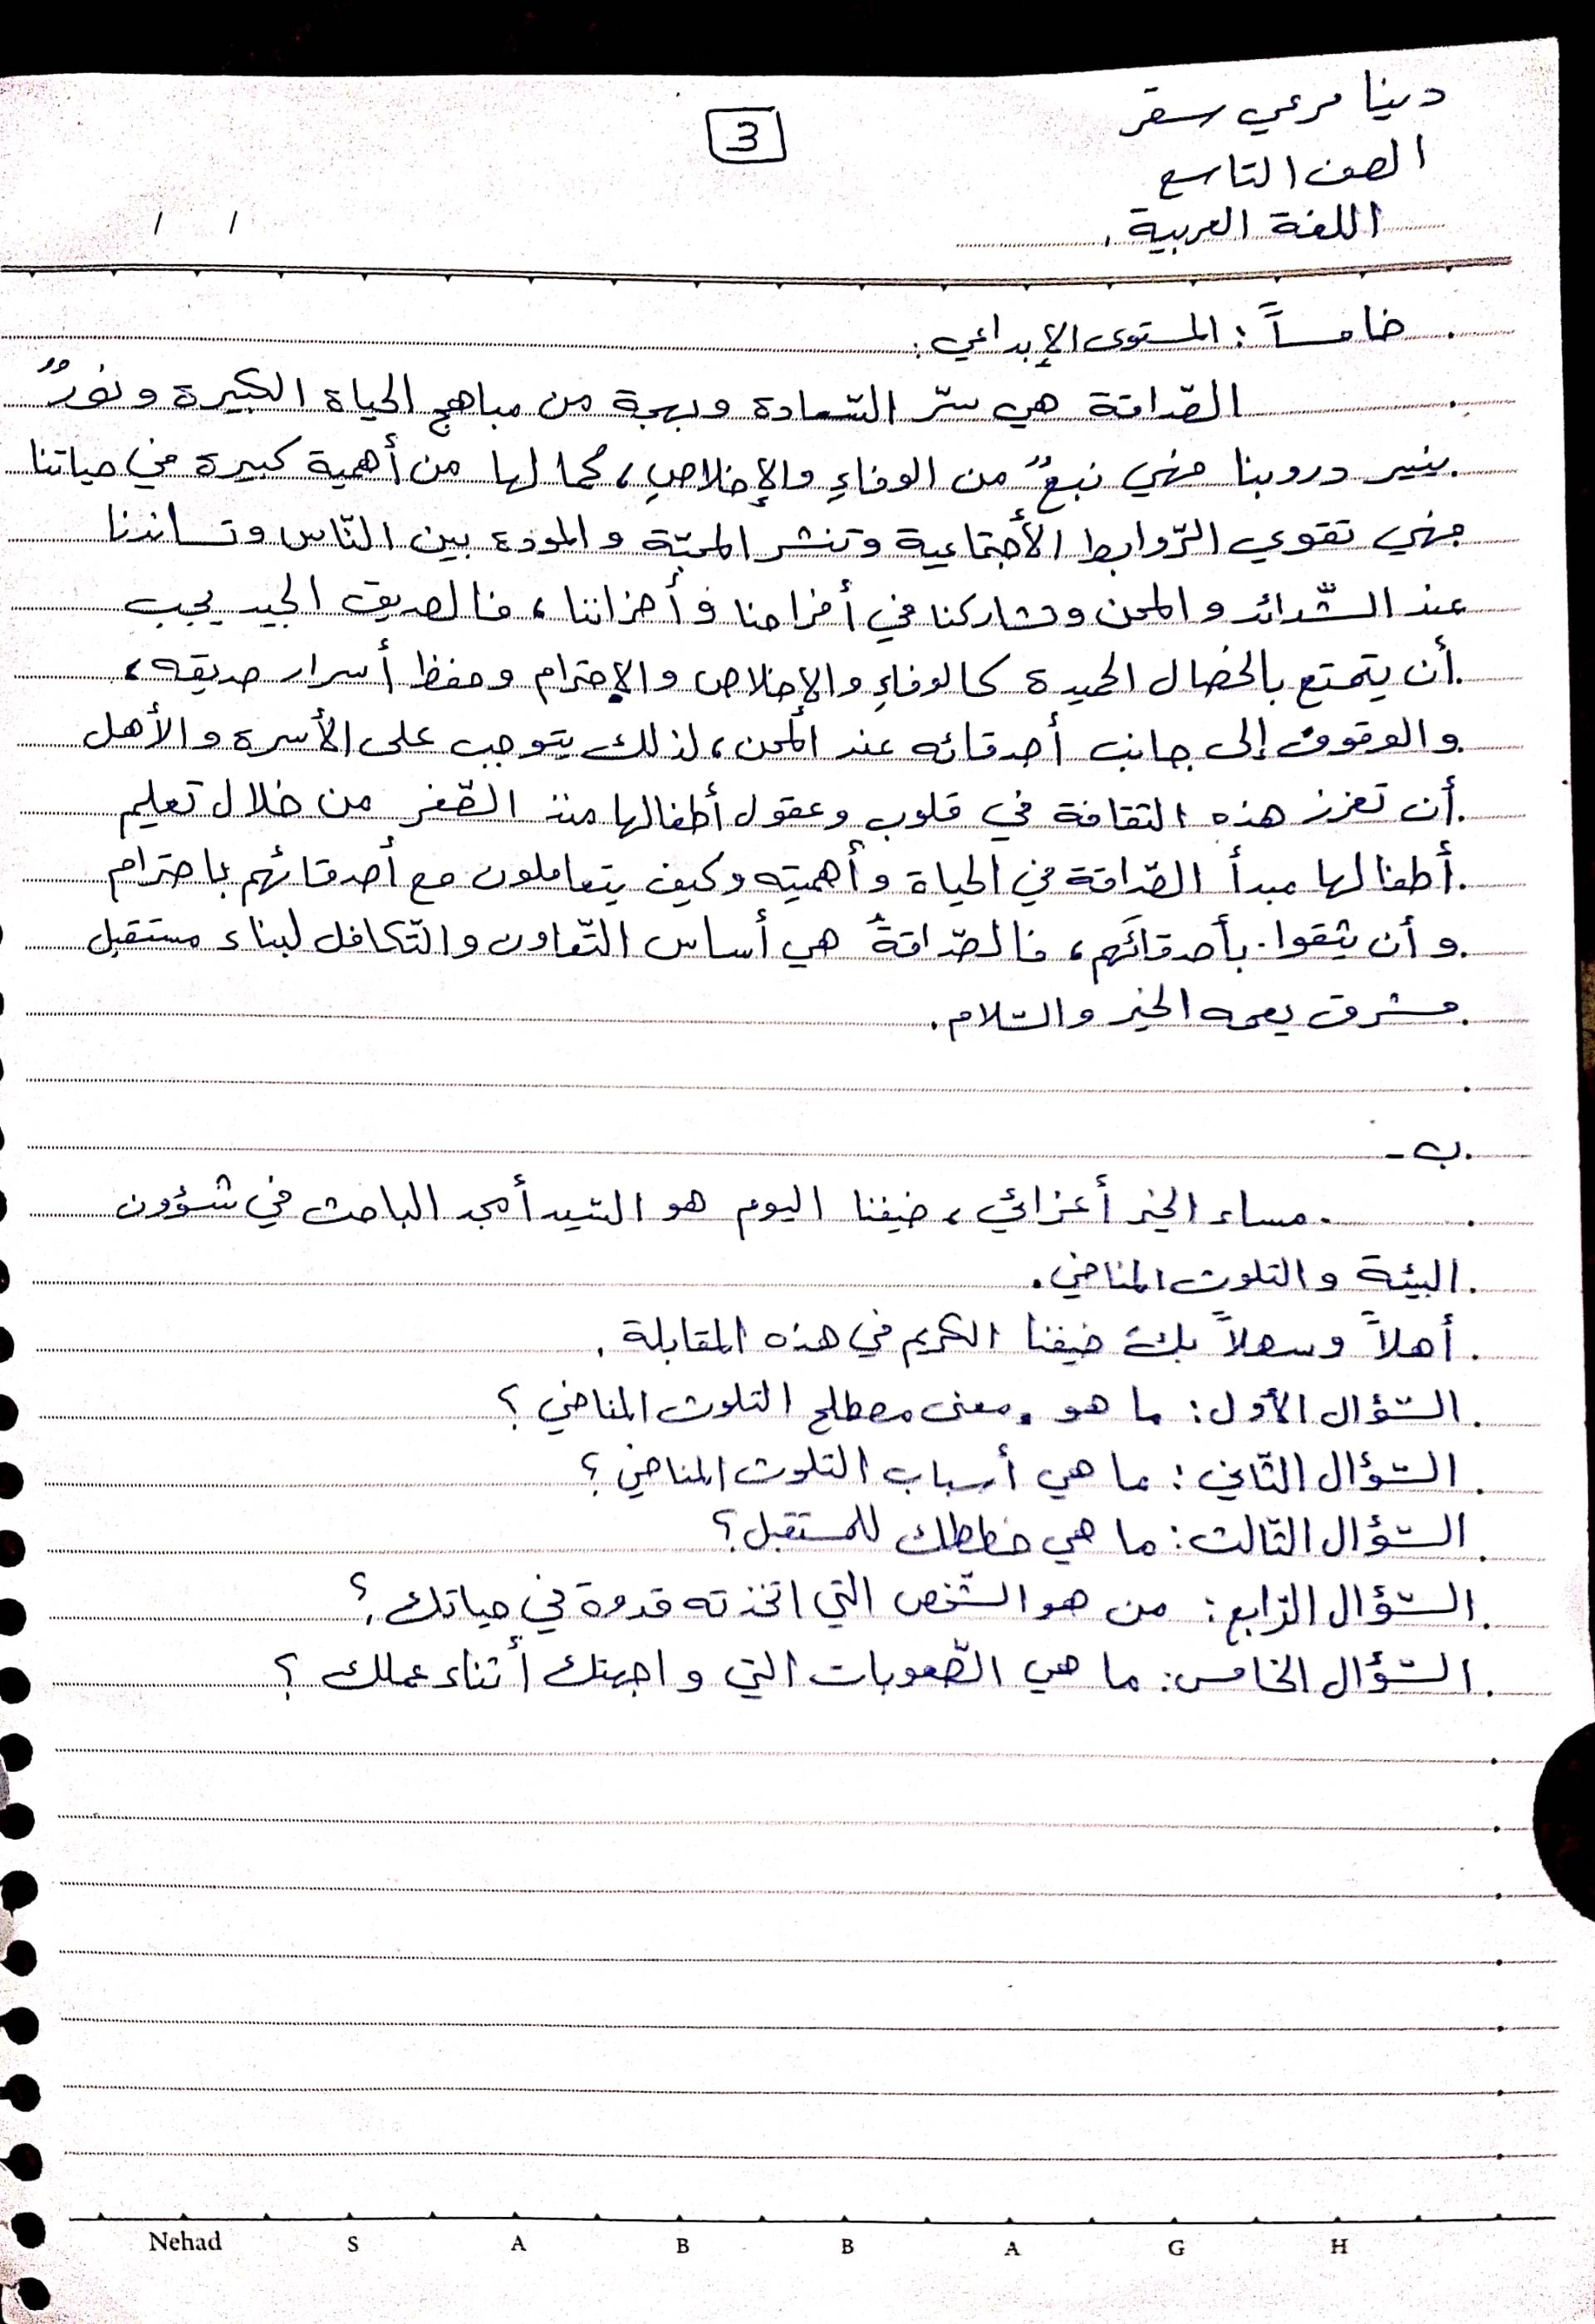 دينا مرعي سقر
3
الصف التاسع
اللغة العربية.
/ /
خامساً: المستوى الإبداعي:
الصّداقة هي سرّ السّعادة وبهجة من مباهج الحياة الكبيرة ونورٌ
ينير دروبنا فهي نبعٌ من الوفاءِ والإخلاصِ، كما لها من أهمية كبيرة في حياتنا
فهي تقوي الرّوابط الأجتماعية وتنشر المحبّة والمودة بين النّاس وتساندنا
عند الشّدائد والمحن وتشاركنا في أفراحنا وأحزاننا، فالصديق الجيد يجب
أن يتمتع بالخصال الحميدة كالوفاءِ والإخلاص والإحترام وحفظ أسرار صديقه،
والوقوف إلى جانب أصدقائه عند المحن، لذلك يتوجب على الأسرة والأهل
أن تعزز هذه الثقافة في قلوب وعقول أطفالها منذ الصّغر من خلال تعليم
أطفالها مبدأ الصّداقة في الحياة وأهميته وكيف يتعاملون مع أصدقائهم باحترام
وأن يثقوا بأصدقائهم، فالصّداقةُ هي أساس التّعاون والتّكافل لبناء مستقبل
مشرق يعمه الخير والسّلام.
ب-
مساء الخير أعزائي، ضيفنا اليوم هو السّيد أمجد الباحث في شؤون
البيئة والتلوث المناخي.
أهلاً وسهلاً بك ضيفنا الكريم في هذه المقابلة.
السّؤال الأول: ما هو معنى مصطلح التلوث المناخي؟
السّؤال الثّاني: ما هي أسباب التلوث المناخي؟
السّؤال الثّالث: ما هي خططك للمستقبل؟
السّؤال الرّابع: من هو الشّخص التي اتخذته قدوة في حياتك؟
السّؤال الخامس: ما هي الصّعوبات التي واجهتك أثناء عملك؟
Nehad S A B B A G H